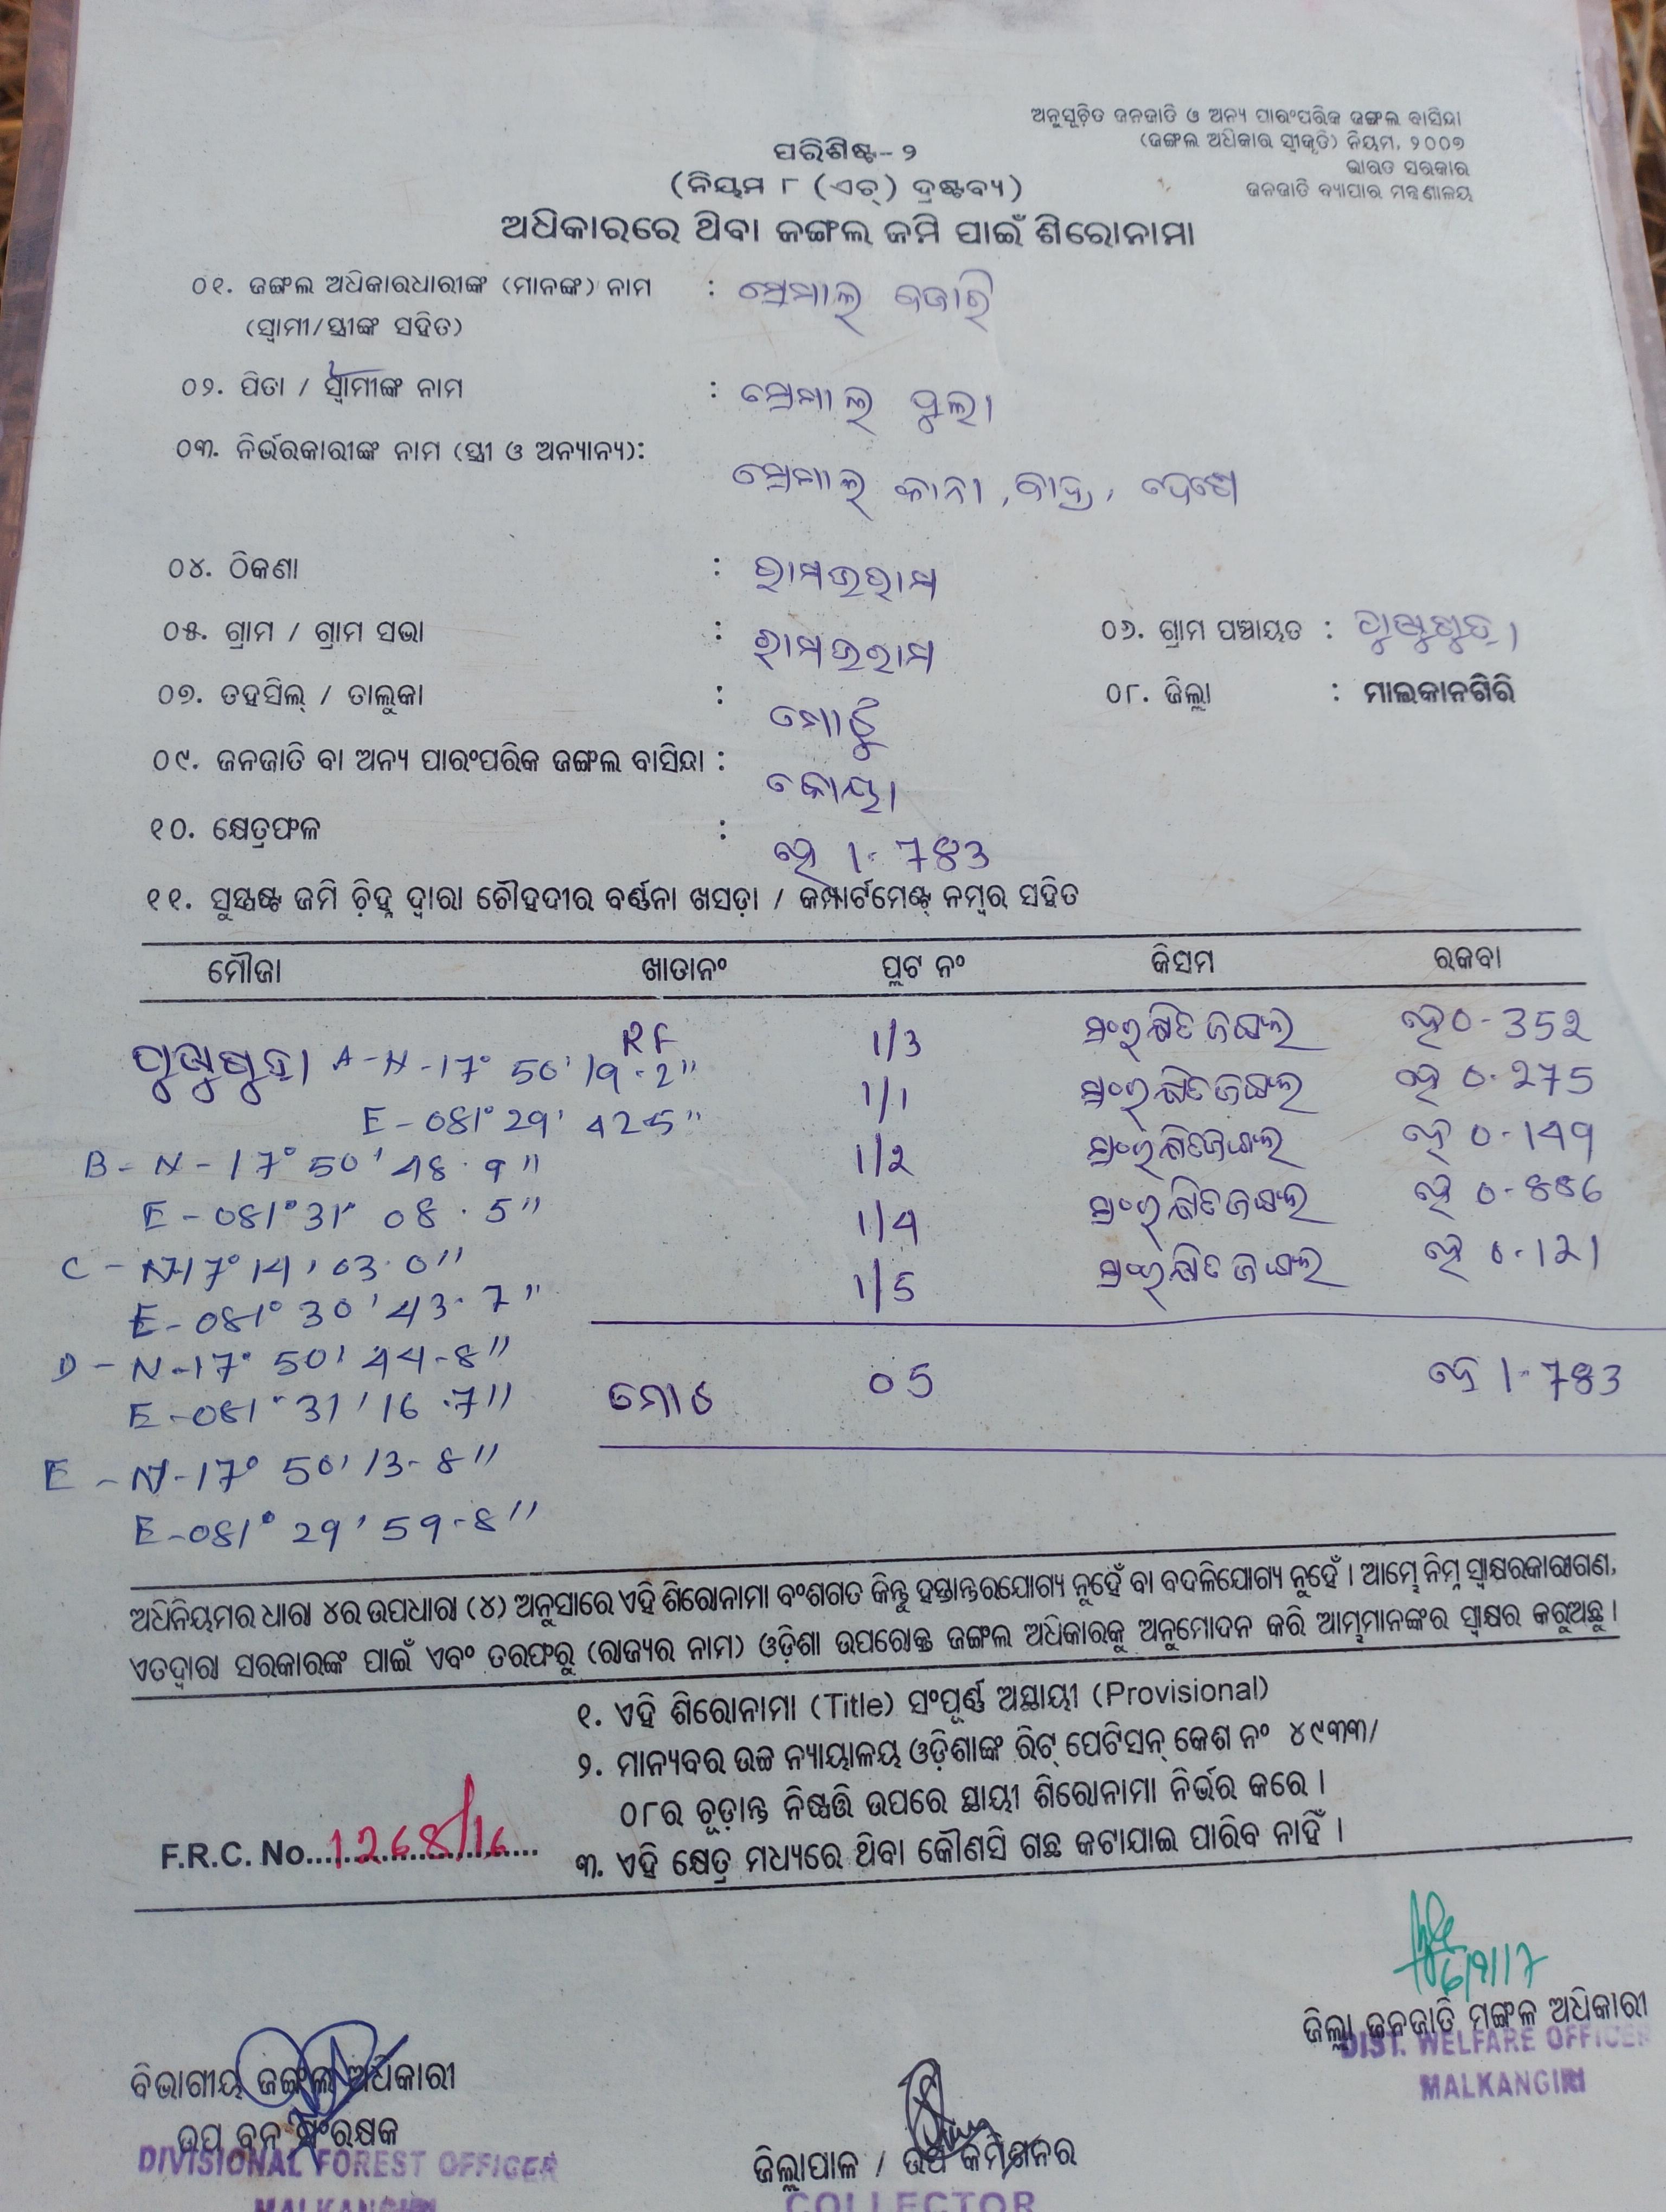 ଅନୁସୂଚିତ ଜନଜାତି ଓ ଅନ୍ୟ ପାରଂପରିକ ଜଙ୍ଗଲ ବାସିନ୍ଦା
(ଜଙ୍ଗଲ ଅଧିକାର ସ୍ୱୀକୃତି) ନିୟମ, ୨୦୦୭
ଭାରତ ସରକାର
ଜନଜାତି ବ୍ୟାପାର ମନ୍ତ୍ରଣାଳୟ
ପରିଶିଷ୍ଟ- ୨
(ନିୟମ ୮ (ଏଚ୍) ଦ୍ରଷ୍ଟବ୍ୟ)
ଅଧିକାରରେ ଥିବା ଜଙ୍ଗଲ ଜମି ପାଇଁ ଶିରୋନାମା
୦୧. ଜଙ୍ଗଲ ଅଧିକାରଧାରୀଙ୍କ (ମାନଙ୍କ) ନାମ :
(ସ୍ୱାମୀ/ସ୍ତ୍ରୀଙ୍କ ସହିତ)
୦୨. ପିତା / ସ୍ୱାମୀଙ୍କ ନାମ :
୦୩. ନିର୍ଭରକାରୀଙ୍କ ନାମ (ସ୍ତ୍ରୀ ଓ ଅନ୍ୟାନ୍ୟ):
୦୪. ଠିକଣା :
୦୫. ଗ୍ରାମ / ଗ୍ରାମ ସଭା : ୦୬. ଗ୍ରାମ ପଞ୍ଚାୟତ :
୦୭. ତହସିଲ୍ / ତାଲୁକା : ମୋଟୁ ୦୮. ଜିଲ୍ଲା : ମାଲକାନଗିରି
୦୯. ଜନଜାତି ବା ଅନ୍ୟ ପାରଂପରିକ ଜଙ୍ଗଲ ବାସିନ୍ଦା : କୋୟା
୧୦. କ୍ଷେତ୍ରଫଳ : ହେ 1-783
୧୧. ସୁସ୍ପଷ୍ଟ ଜମି ଚ଼ିହ୍ନ ଦ୍ୱାରା ଚୌହଦୀର ବର୍ଣ୍ଣନା ଖସଡ଼ା / କମ୍ପାର୍ଟମେଣ୍ଟ୍ ନମ୍ବର ସହିତ
ମୌଜା ଖାତାନଂ ପ୍ଲଟ ନଂ କିସମ ରକବା
RF 1/3 ସଂରକ୍ଷିତ ଜଙ୍ଗଲ ହେ 0-352
A-N-17° 50' 19.2"
1/1 ସଂରକ୍ଷିତ ଜଙ୍ଗଲ ହେ 0-275
E-081° 29' 42.5"
B-N-17° 50' 48.9" 1/2 ସଂରକ୍ଷିତ ଜଙ୍ଗଲ ହେ 0-149
E-081° 31' 08.5" 1/4 ସଂରକ୍ଷିତ ଜଙ୍ଗଲ ହେ 0-886
C-N-17° 14' 03.0" 1/5 ସଂରକ୍ଷିତ ଜଙ୍ଗଲ ହେ 0-121
E-081° 30' 43.7"
D-N-17° 50' 44-8"
E-081° 31' 16.7" ମୋଟ 05 ହେ 1-783
E-N-17° 50' 13-8"
E-081° 29' 59-8"
ଅଧିନିୟମର ଧାରା ୪ର ଉପଧାରା (୪) ଅନୁସାରେ ଏହି ଶିରୋନାମା ବଂଶଗତ କିନ୍ତୁ ହସ୍ତାନ୍ତରଯୋଗ୍ୟ ନୁହେଁ ବା ବଦଳିଯୋଗ୍ୟ ନୁହେଁ । ଆମ୍ଭେ ନିମ୍ନ ସ୍ୱାକ୍ଷରକାରୀଗଣ,
ଏତଦ୍ୱାରା ସରକାରଙ୍କ ପାଇଁ ଏବଂ ତରଫରୁ (ରାଜ୍ୟର ନାମ) ଓଡ଼ିଶା ଉପରୋକ୍ତ ଜଙ୍ଗଲ ଅଧିକାରକୁ ଅନୁମୋଦନ କରି ଆମ୍ଭମାନଙ୍କର ସ୍ୱାକ୍ଷର କରୁଅଛୁ ।
୧. ଏହି ଶିରୋନାମା (Title) ସଂପୂର୍ଣ୍ଣ ଅସ୍ଥାୟୀ (Provisional)
୨. ମାନ୍ୟବର ଉଚ୍ଚ ନ୍ୟାୟାଳୟ ଓଡ଼ିଶାଙ୍କ ରିଟ୍ ପେଟିସନ୍ କେଶ ନଂ ୪୯୩୩/
୦୮ର ଚୂଡ଼ାନ୍ତ ନିଷ୍ପତ୍ତି ଉପରେ ସ୍ଥାୟୀ ଶିରୋନାମା ନିର୍ଭର କରେ ।
F.R.C. No. 1268/16
୩. ଏହି କ୍ଷେତ୍ର ମଧ୍ୟରେ ଥିବା କୌଣସି ଗଛ କଟାଯାଇ ପାରିବ ନାହିଁ ।
6/9/17
ଜିଲ୍ଲା ଜନଜାତି ମଙ୍ଗଳ ଅଧିକାରୀ
DIST. WELFARE OFFICER
MALKANGIRI
ବିଭାଗୀୟ ଜଙ୍ଗଲ ଅଧିକାରୀ
ଉପ ବନ ସଂରକ୍ଷକ
DIVISIONAL FOREST OFFICER
MALKANGIRI
ଜିଲ୍ଲାପାଳ / ଉପ କମିଶନର
COLLECTOR